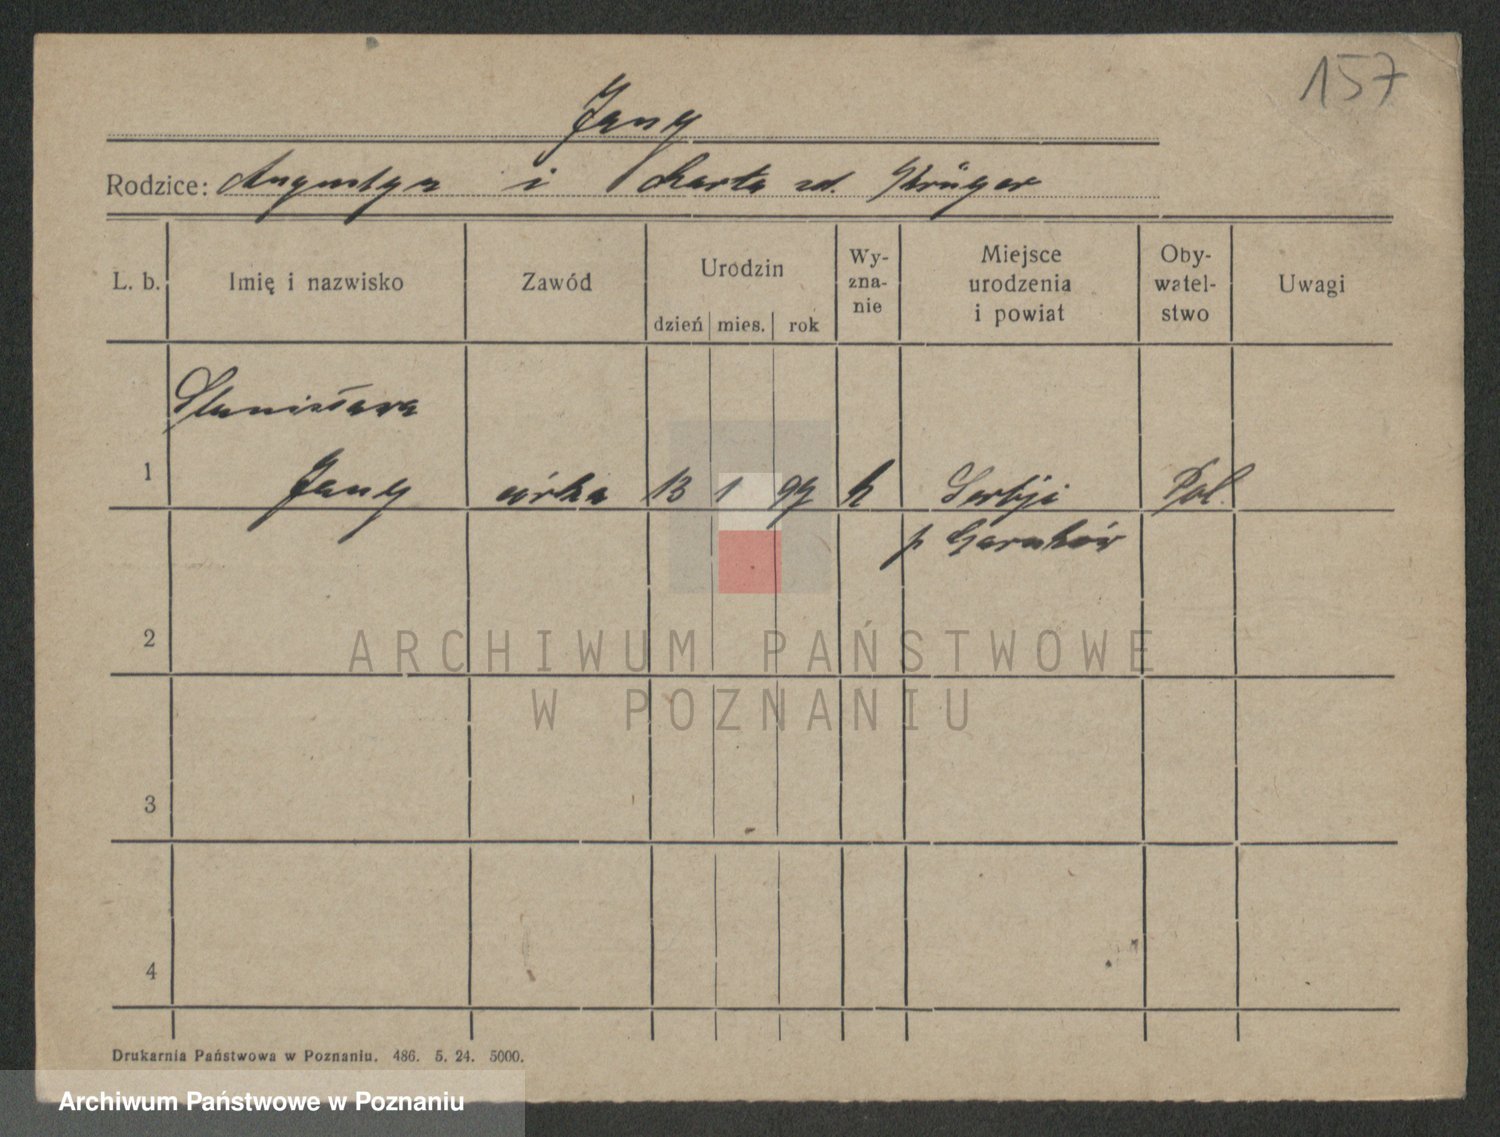 157
Jany
Rodzice: Augustyn i Marta zd. Krüger
L. b.
Imię i nazwisko
Zawód
Urodzin
dzień mies. rok
Wy-
zna-
nie
Miejsce
urodzenia
i powiat
Oby-
watel-
stwo
Uwagi
Stanisława
1 Jany córka 13 1 99 k Serbji Pol.
p
2
3
4
ARCHIWUM PAŃSTWOWE
W POZNANIU
Drukarnia Państwowa w Poznaniu. 486. 5. 24. 5000.
Archiwum Państwowe w Poznaniu